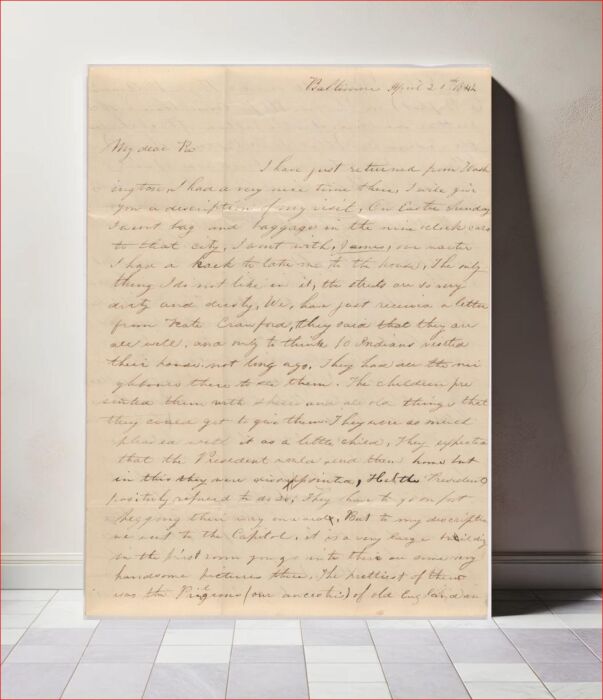 Baltimore April 20th 1844
My dear Ro
I have just returned from Wash
ington, I had a very nice time there, I will give
you a description of my visit, On Easter Sunday
I went bag and baggage in the nine o'clock cars
to that city, I went with, James, our waiter
I had a hack to take me to the house, The only
thing I do not like in it, the streets are so very
dirty and dusty, We, have just received a letter
from Kate Crawford, they said that they are
all well, and only to think 10 Indians visited
their house not long ago, They had all the nei
ghbours there to see them. The children pre
sented them with shoes and all old things that
they could get to give them They were as much
pleased with it as a little child, They expected
that the President would send them home but
in this they were disappointed, the President
positively refused to do so, They have to go on foot
begging their way onward, But to my descriptio
we went to the Capitol, it is a very large building
in the first room you go into there are some very
handsome pictures there, The prettiest of them
was the Pilgrims (our ancestors) of old England an